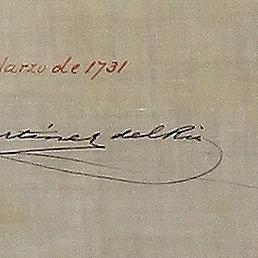 arzo de 1731
artínez del Río